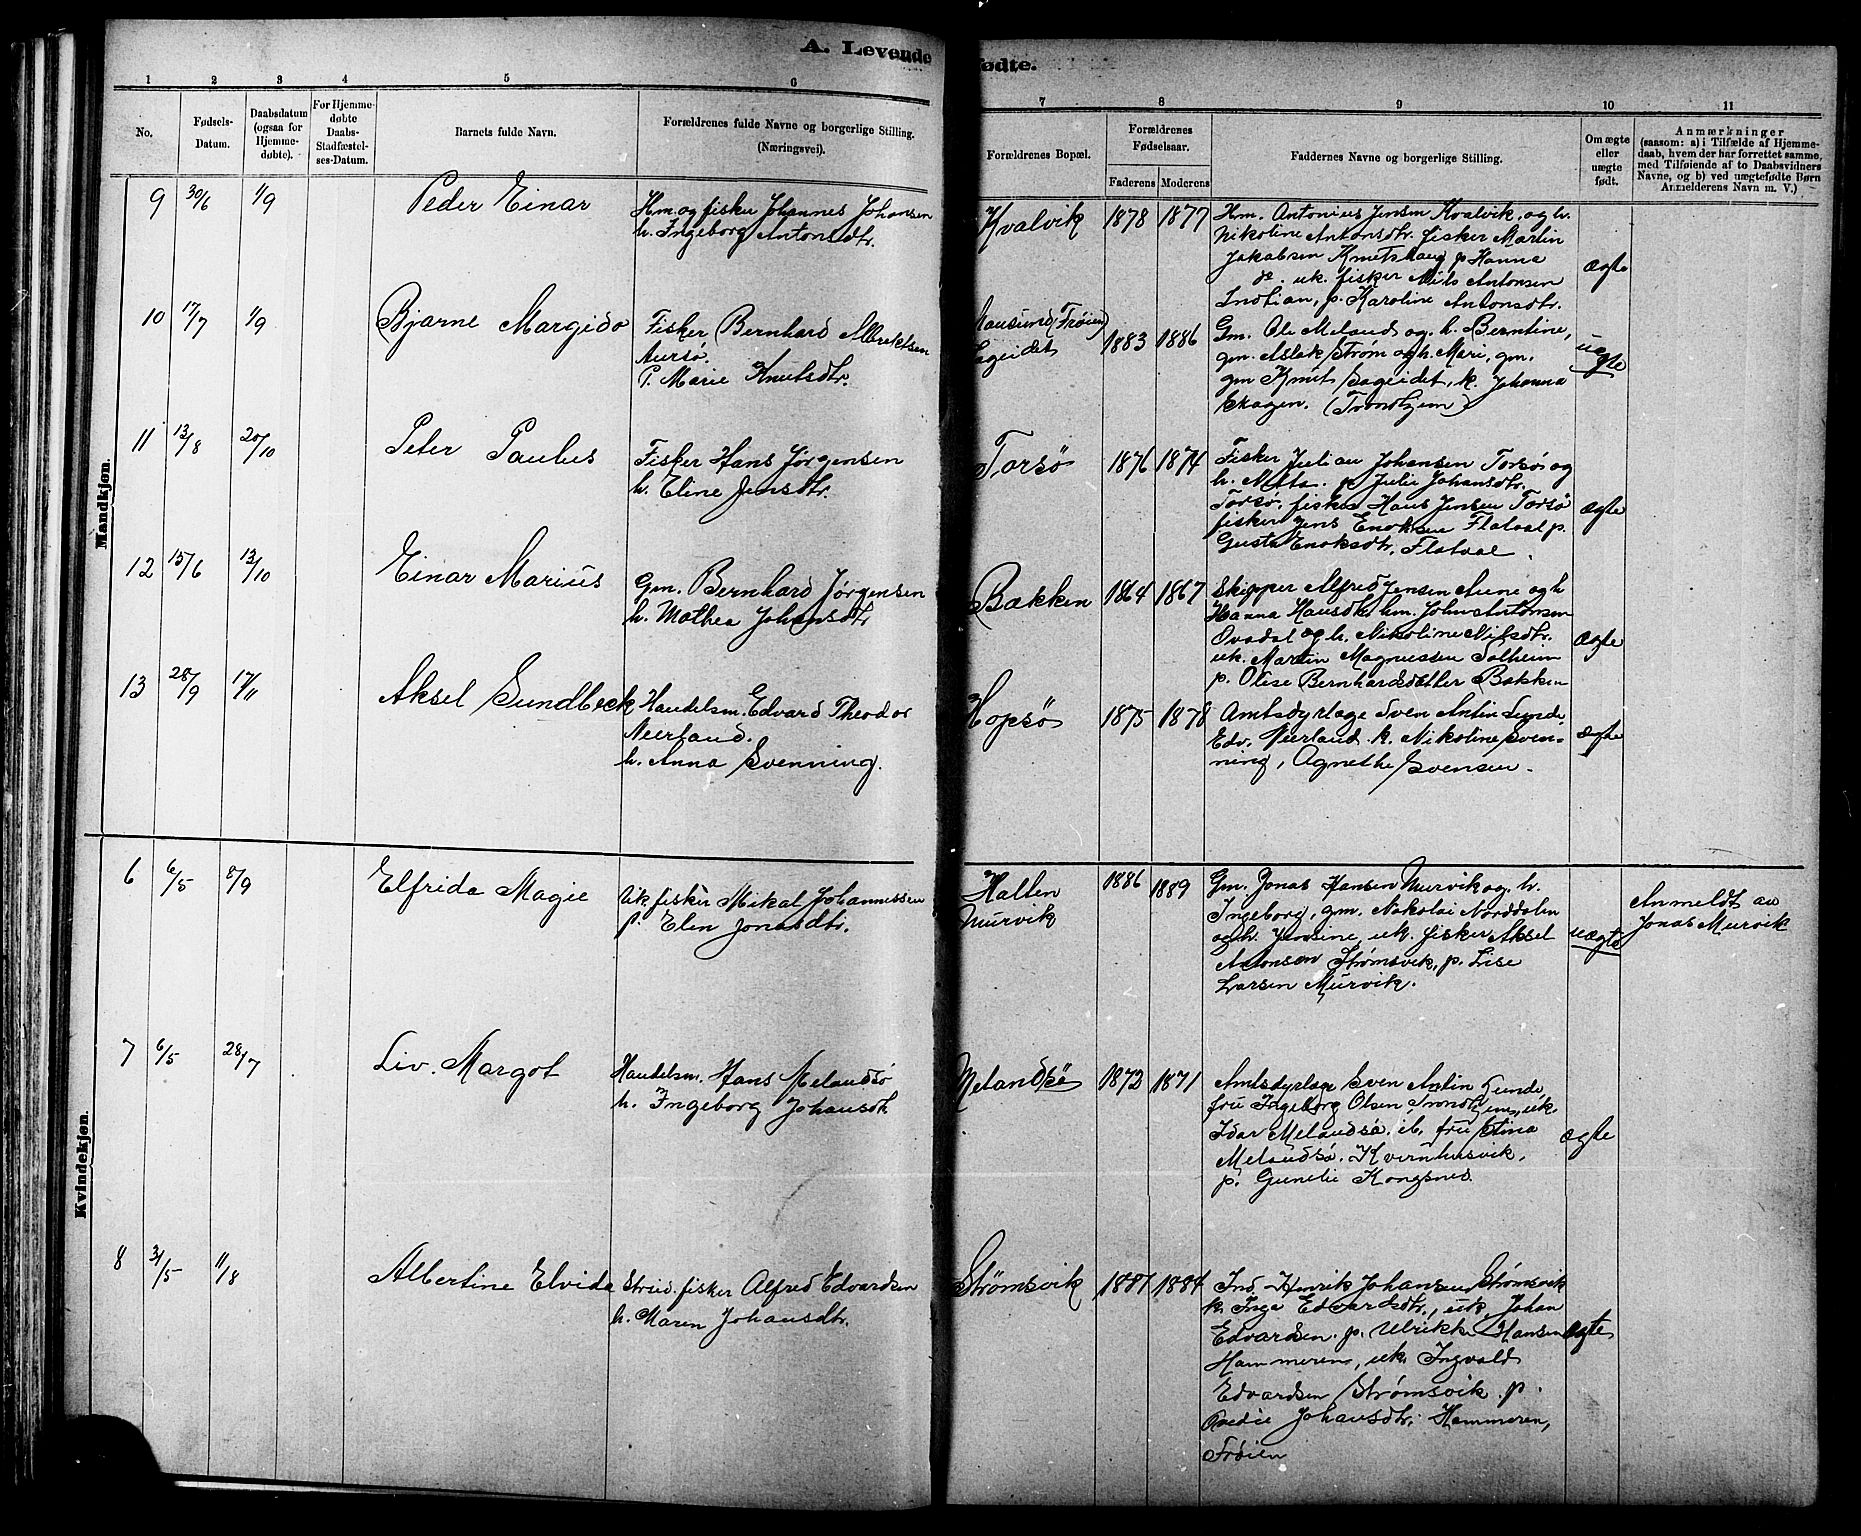 A. Levende fødte.
1 2 3 4 5 6 7 8 9 10 11
No.
Fødsels-Datum.
Daabsdatum (ogsaa for Hjemme-døbte).
For Hjemme-døbte Daabs-Stadfæstel-ses-Datum.
Barnets fulde Navn.
Forældrenes fulde Navne og borgerlige Stilling. (Næringsvei).
Forældrenes Bopæl.
Forældrenes Fødselsaar.
Faderens Moderens
Faddernes Navne og borgerlige Stilling.
Om ægte eller uægte født.
Anmærkninger
(saasom: a) i Tilfælde af Hjemme-
daab, hvem der har forrettet samme,
med Tilføiende af to Daabsvidners
Navne, og b) ved uægtefødte Børn
Anmelderens Navn m. V.)
Mandkjøn.
9 30/6 1/9 Peder Einar
Hm. og fisker Johannes Johansen
h. Ingeborg Antonsdtr.
Kvalvik 1878 1877
Hm. Antonius Jensen Kvalvik, og h.
Nikoline Antonsdtr. fisker Martin
Jakobsen Knutshaug p. Hanna
do. uk. fisker Nils Antonsen
Indtian, p. Karoline Antonsdtr.
ægte
10 17/7 1/9 Bjarne Margido
Fisker Bernhard Albrektsen
Aursø.
P. Marie Knutsdtr.
Mausund (Frøien)
Sageidet 1883 1886
Gm. Ole Meland og h. Berntine,
gm. Aslak Strøm og h. Mari, gm.
gm Knut Sageidet, k. Johanna
Skagen. (Trondhjem)
uægte
11 13/8 20/10 Peter Paulus
Fisker Hans Jørgensen
h. Eline Jensdtr.
Torsø 1876 1874
Fisker Julian Johansen Torsø og
h. Meta. p. Julie Johansdtr.
Torsø, fisker Hans Jensen Torsø
fisker Jens Enoksen Flatval p.
Gusta Enoksdtr. Flatval.
ægte
12 15/6 13/10 Einar Marius
Gm. Bernhard Jørgensen
h. Mathea Johansdtr
Bakken 1864 1867
Skipper Alfred Jensen Aune og h
Hanna Hansdtr. hm. John Antonsen
og h. Nikoline Nilsdtr.
uk. Martin Magnussen Solheim
p. Olise Bernhardsdatter Bakken
ægte
13 28/9 17/11 Aksel Sundbeck
Handelsm. Edvard Theodor
Neerland.
h. Anna Svenning.
Hopsø 1875 1878
Amtsdyrlæge Sven Antin Lunde,
Edv. Neerland. k. Nikoline Sven-
ning, Agnethe Svensen.
ægte
Kvindekjøn.
6 6/5 8/9 Elfrida Magie
Uk. fisker Mikal Johannessen
p. Elen Jonasdtr.
Halten
Murvik
1886 1889
Gm. Jonas Hansen Murvik og h.
Ingeborg, gm. Nikolai Norddalen
og h. Jensine, uk. fisker Aksel
Antonsen Strømsvik, p. Lise
Larsen Murvik.
uægte
Anmeldt av
Jonas Murvik
7 6/5 28/7 Liv Margot
Handelsm. Hans Melandsø
h. Ingeborg Johansdtr
Melandsø 1872 1871
Amtsdyrlæge Sven Antin Lunde,
fru Ingeborg Olsen Trondhjem, uk.
Idar Melandsø. ib. fru Stina
Melandsø. Kvernhusvik,
p. Gunelie Kongsnes
ægte
8 31/5 11/8 Albertine Elvida
Strsid. fisker Alfred Edvardsen
h. Maren Johansdtr.
Strømsvik 1881 1884
Ind. Henrik Johansen Strømsvik
k. Inga Edvardsdtr., uk. Johan
Edvardsen. p. Ulrikke Hansen
Hammeren, uk. Ingvald
Edvardsen Strømsvik. p.
Johansdtr. Hammeren,
Frøien
ægte